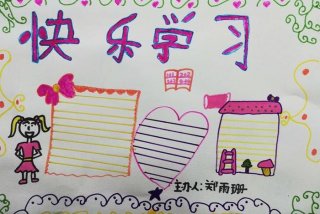 快乐学习
主办人:郑雨珊